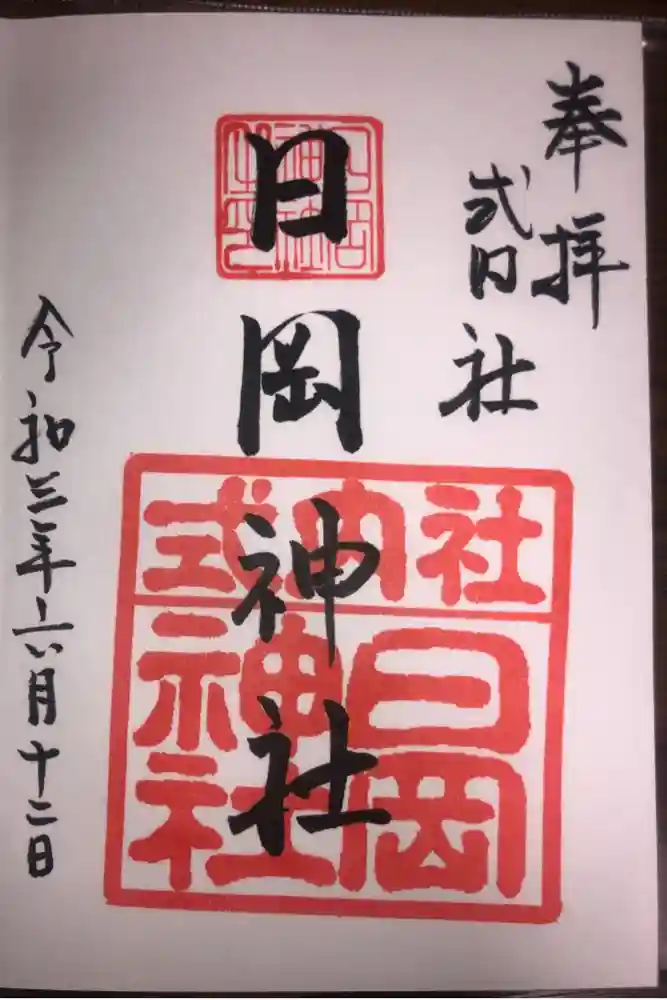 奉拝
式内社
日岡神社
令和三年六月十二日
日岡
神社
之印
式内社
日岡
神社